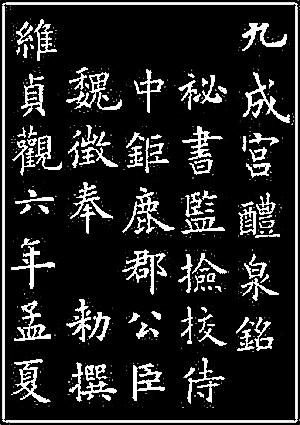 九成宮醴泉銘
祕書監撿挍侍
中鉅鹿郡公臣
魏徵奉 勑撰
維貞觀六年孟夏